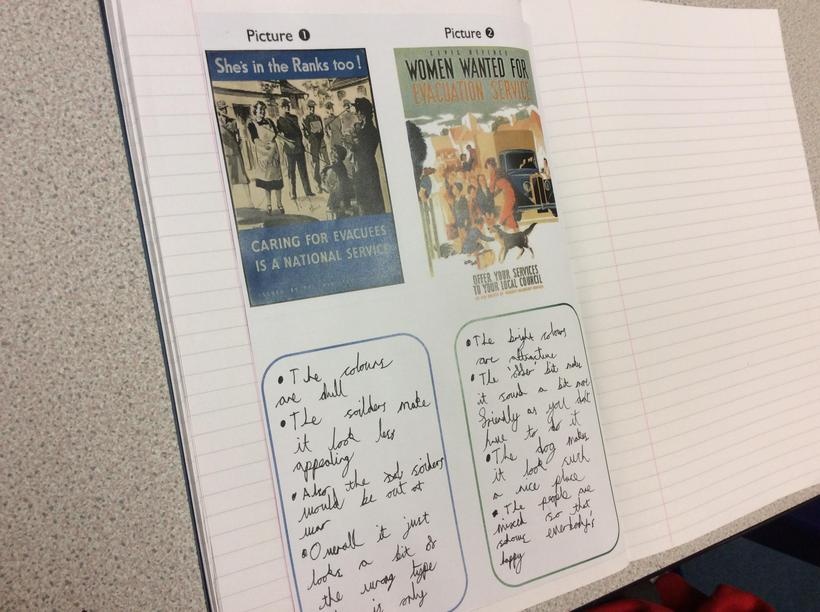 Picture 1
She's in the Ranks too!
CARING FOR EVACUEES
IS A NATIONAL SERVICE
Picture 2
CIVIL DEFENCE
WOMEN WANTED FOR
EVACUATION SERVICE
OFFER YOUR SERVICES
TO YOUR LOCAL COUNCIL
• The colours
are dull
• The soilders make
it look less
appealing
• Also the soilders
would be out at
war
• Overall it just
looks a bit of
the wrong type
is only
• The bright colours
are attractive
• The 'offer' bit make
it sound a bit more
friendly as you don't
have to do it
• The dog makes
it look such
a nice place
• The people are
mixed so that
shows everbody's
happy